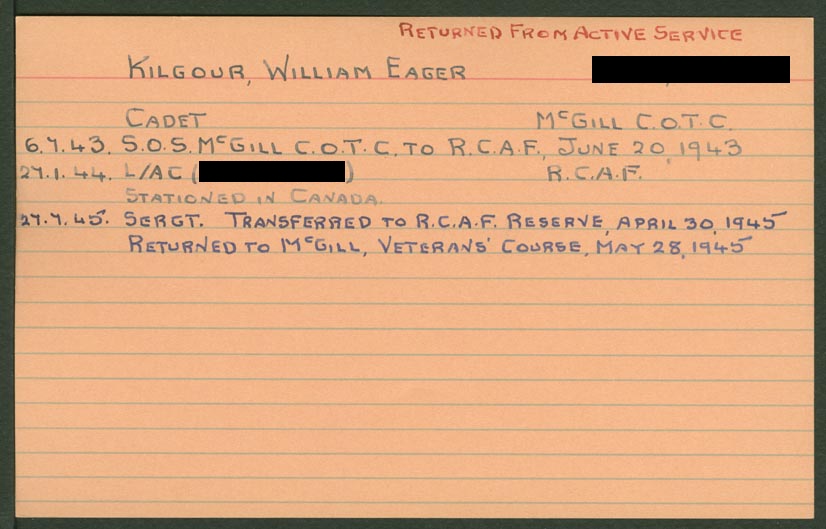 RETURNED FROM ACTIVE SERVICE
KILGOUR, WILLIAM EAGER
CADET McGILL C.O.T.C.
6.7.43. S.O.S. McGILL C.O.T.C. TO R.C.A.F., JUNE 20, 1943
27.1.44. L/AC ( ) R.C.A.F.
STATIONED IN CANADA.
27.7.45. SERGT. TRANSFERRED TO R.C.A.F. RESERVE, APRIL 30, 1945
RETURNED TO McGILL, VETERANS' COURSE, MAY 28, 1945